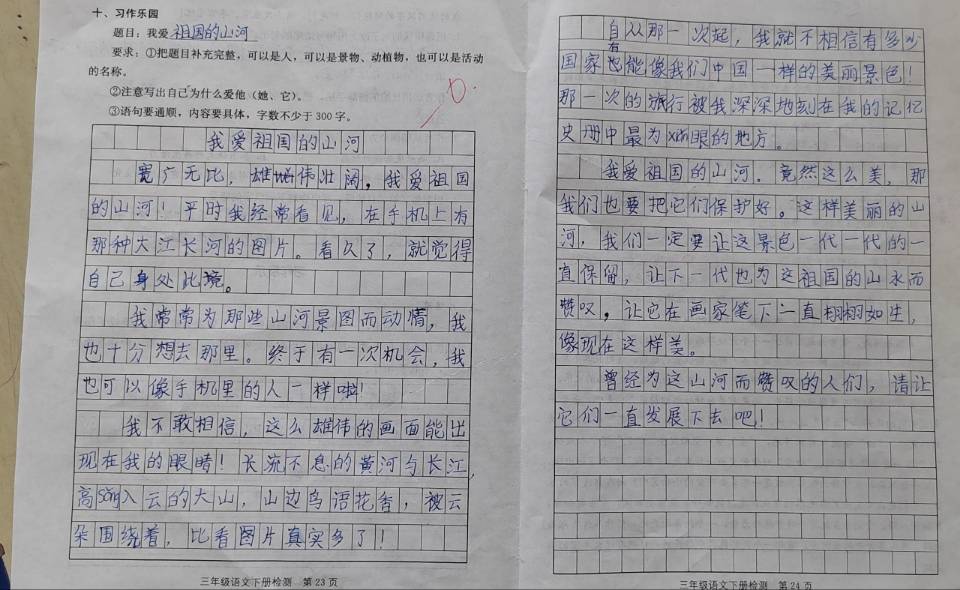 十、习作乐园
题目：我爱祖国的山河
要求：①把题目补充完整，可以是人，可以是景物、动植物，也可以是活动
的名称。
②注意写出自己为什么爱他（她、它）。
③语句要通顺，内容要具体，字数不少于 300 字。
我爱祖国的山河
宽广无比，雄伟壮阔，我爱祖国
的山河！平时我经常看见，在手机上有
那种大江长河的图片。看久了，就觉得
自己身处此境。
我常常为那些山河景图而动情，我
也十分想去那里。终于有一次机会，我
也可以像手机里的人一样啦！
我不敢相信，这么雄伟的画面能出
现在我的眼睛！长流不息的黄河与长江，
高sǒng入云的大山，山边鸟语花香，被云
朵围绕着，比看图片真实多了！
三年级语文下册检测 第 23 页
自从那一次起，我就不相信有多少
国家有也能像我们中国一样的美丽景色！
那一次的旅行被我深深地刻在我的记忆
史册中最为xiǎn眼的地方。
我爱祖国的山河，竟然这么美，那
我们也要把它们保护好。这样美丽的山
河，我们一定要让这景色一代一代的一
直保留，让下一代也为这祖国的山水而
赞叹，让它在画家笔下一直栩栩如生，
像现在这样美。
曾经为这山河而赞叹的人们，请让
它们一直发展下去吧！
三年级语文下册检测 第 24 页